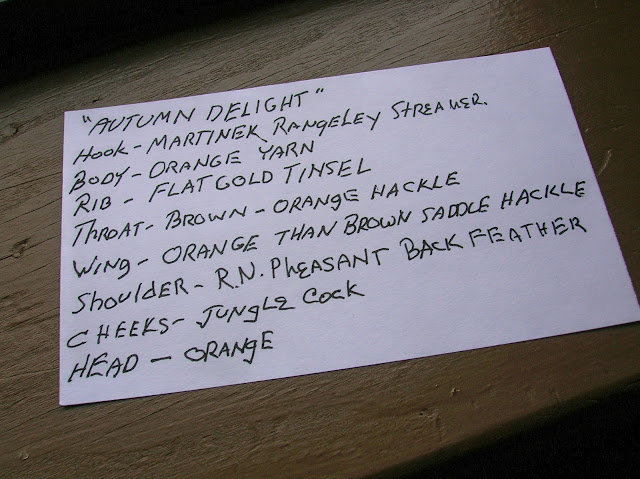 "AUTUMN DELIGHT"
HOOK - MARTINEK RANGELEY STREAMER.
BODY - ORANGE YARN
RIB - FLAT GOLD TINSEL
THROAT - BROWN - ORANGE HACKLE
WING - ORANGE THAN BROWN SADDLE HACKLE
SHOULDER - R.N. PHEASANT BACK FEATHER
CHEEKS - JUNGLE COCK
HEAD - ORANGE